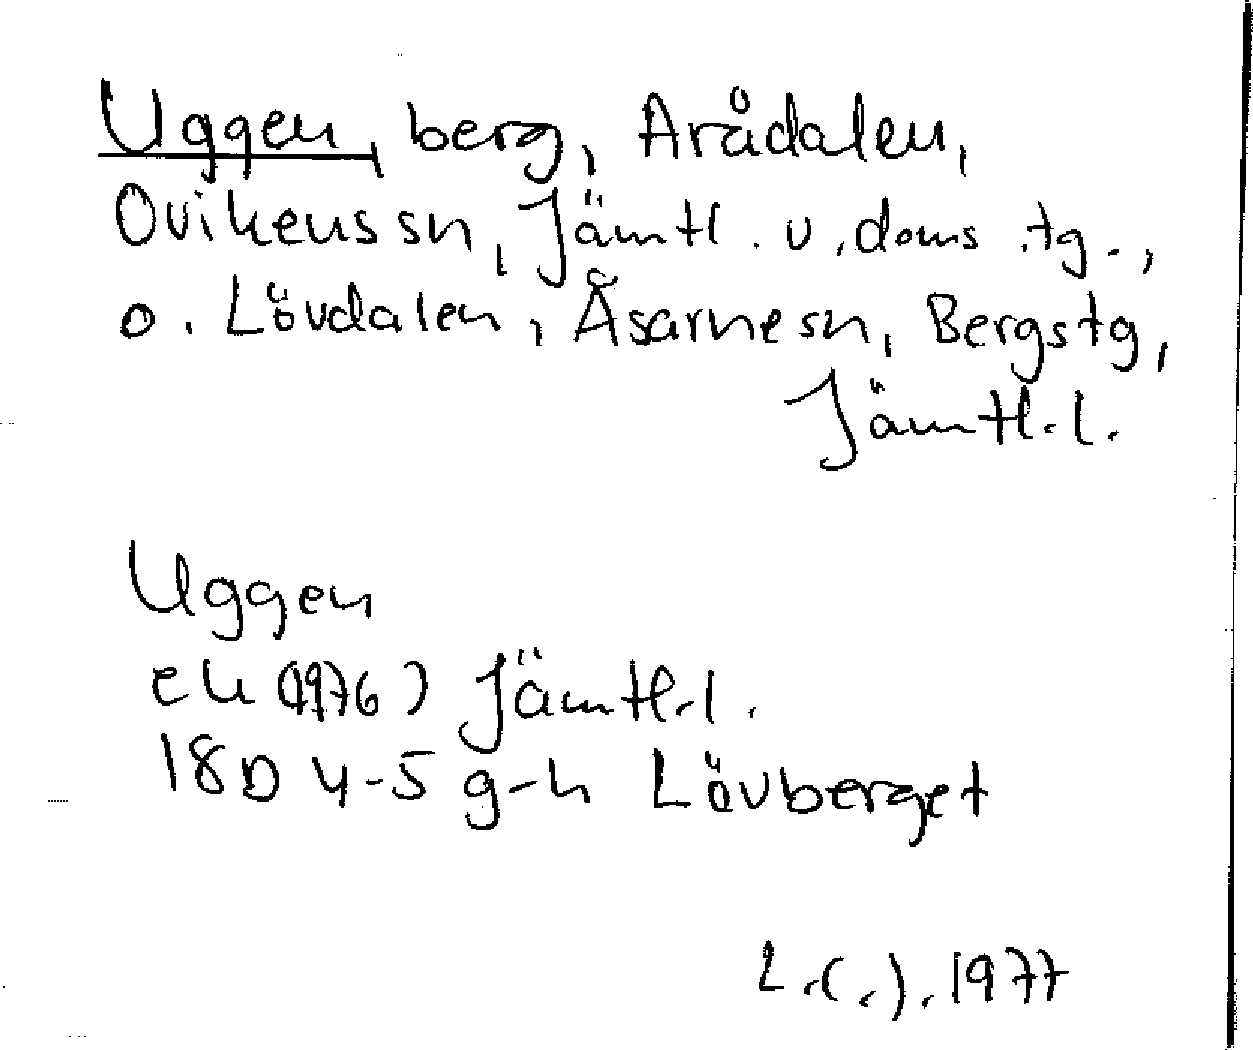 Uggen, berg, Arådalen,
Ovikens sn, Jämtl. v. doms.tg.,
o. Lövdalen, Åsarne sn, Bergs tg,
Jämtl.l.
Uggen
ek (1976) Jämtl.l.
18D 4-5 g-h Lövberget
1977